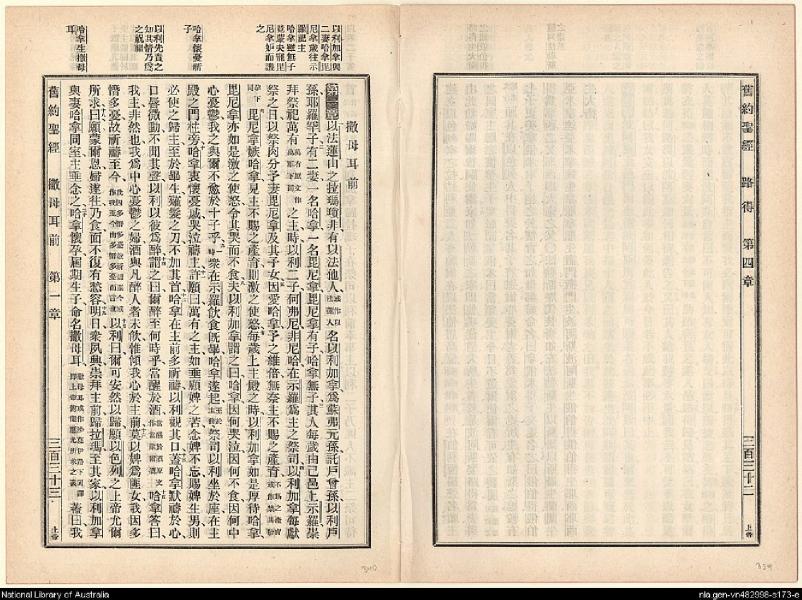 舊約聖經 路得 第四章
三百三十二
上帝
以利加拿與
二妻哈拿毘
尼拿歲往示
羅祀主
哈拿雖無子
尼拿妒而譏
之
哈拿懷憂祈
子
以利先責之
知其情乃爲
之祝福
哈拿生撒母
耳
撒母耳前
以法蓮山之拉瑪瑣非有以法他人
名以利加拿爲蘇弗元孫託戶曾孫以利戶
孫耶羅罕子有二妻一名哈拿一名毘尼拿毘尼拿有子哈拿無子其人每歲由己邑上示羅崇
拜祭祀萬有
之主時以利二子何弗尼非尼哈在示羅爲主之祭司以利加拿每獻
祭之日以祭肉分予妻毘尼拿及其子女因愛哈拿予之維倍無奈主不賜之產育
毘尼拿嫉哈拿見主不賜之產育則激之使怒每歲上主殿之時以利加拿如是厚待哈拿
毘尼拿亦如是激之使怒令其哭而不食夫以利加拿謂之曰哈拿因何哭泣因何不食因何中
心憂鬱我之與爾不愈於十子乎
衆在示羅飲食既畢哈拿遂起
祭司以利坐於座在主
殿之門柱旁哈拿衷懷憂戚哭泣禱主許願曰萬有之主如垂顧婢之苦念婢不忘賜婢生男則
必使之歸主至於畢生薙髮之刀不加其首哈拿在主前多祈禱以利觀其口蓋哈拿默禱於心
口唇微動不聞其聲以利以彼爲醉謂之曰爾醉至何時乎當醒於酒
哈拿答曰
我主非然也我爲中心憂鬱之婦酒與凡醉人者未飲惟傾我心於主前莫以婢爲匪女我因多
憯多憂故祈禱至今
以利曰爾可安然以歸願以色列之上帝允爾
所求曰願蒙爾恩婦遂往乃食而不復有愁容明日衆夙興崇拜主前歸拉瑪至其家以利加拿
與妻哈拿同室主垂念之哈拿懷孕屆期生子命名撒母耳
蓋曰我
舊約聖經 撒母耳前 第一章
三百三十三
上帝
National Library of Australia
nla.gen-vn482998-s173-e